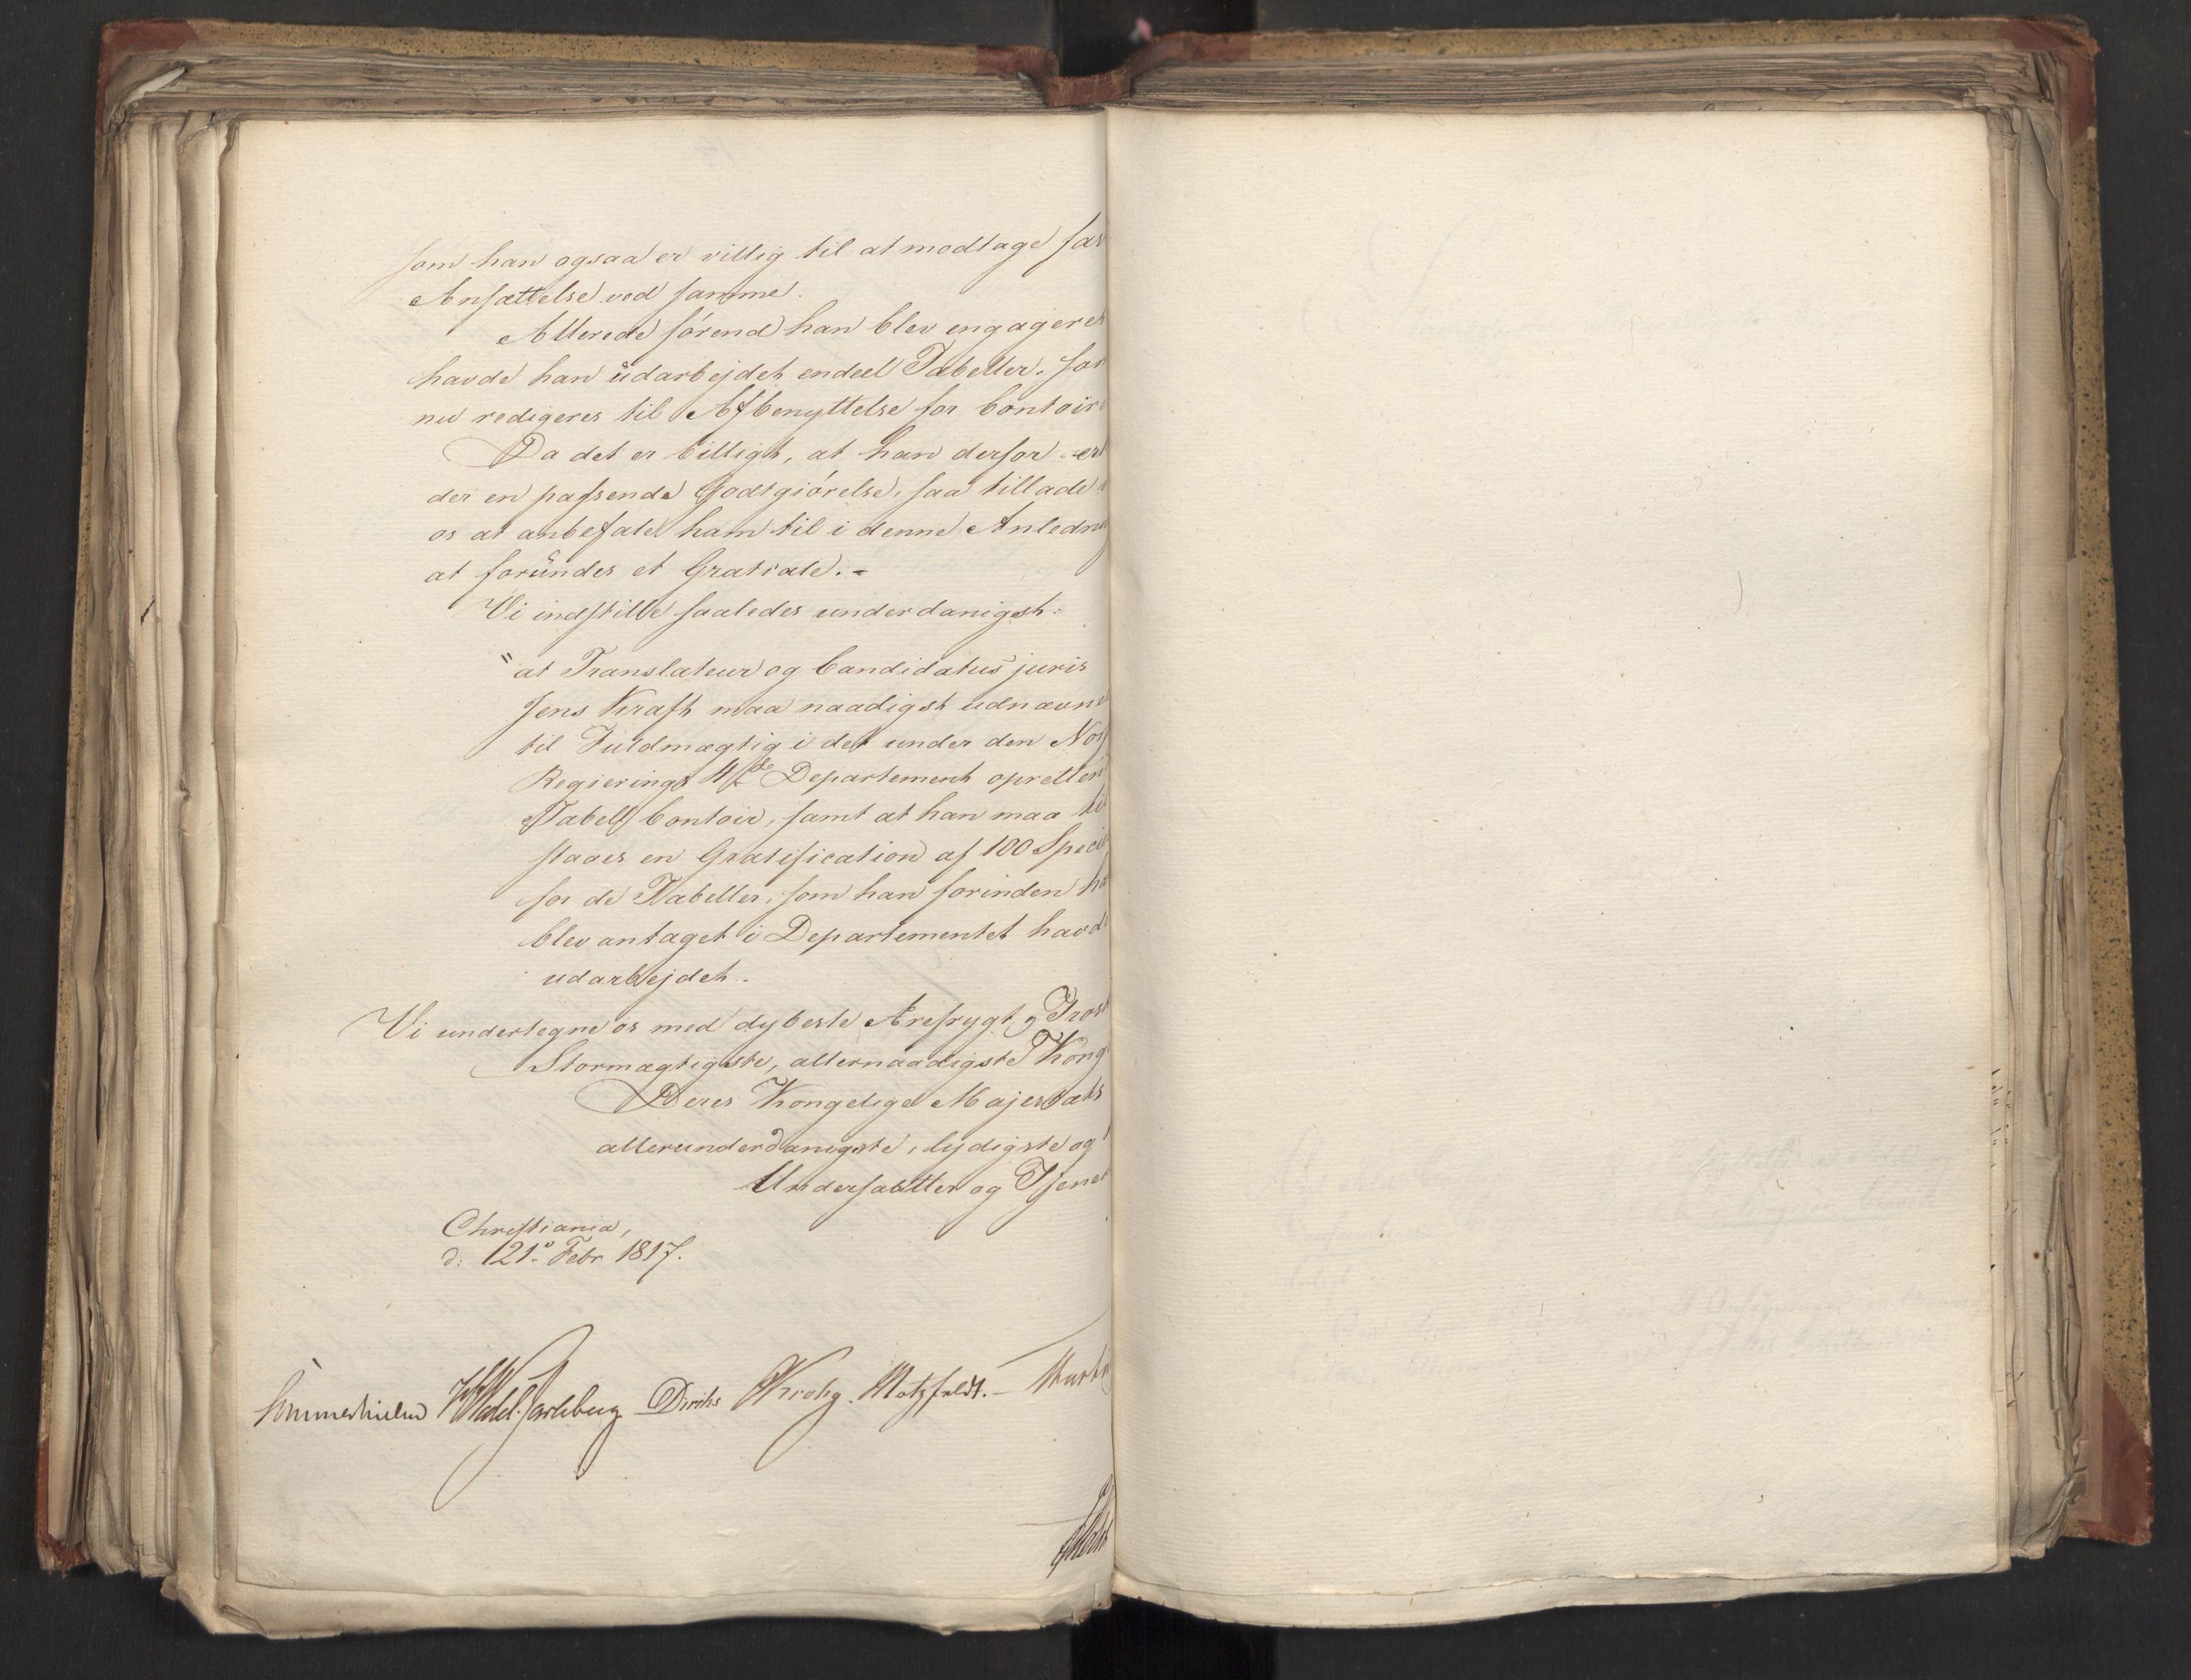 som han ogsaa er villig til at modtage
Ansættelse ved samme.
Allerede förend han blev engageret
havde han udarbejdet endeel Tabeller, som
nu redigeres til Afbenyttelse for Contoir
Da det er billigt, at han derfor
der en passende Godtgiörelse, saa tillade
os at anbefale ham til i denne Anledn
at forundes et Gratiale. -
Vi indstille saaledes underdanigst:
"at Translateur og Candidatus juris
Jens Kraft maa naadigst udnævne
til Fuldmægtig i det under den Nor
Regierings 4de Departement opretten
Tabell Contoir, samt at han maa til
staaes en Gratification af 100 Speci
for de Tabeller, som han forinden ha
blev antaget i Departementet havde
udarbejdet.
Vi undertegne os med dybeste Ærefrygt og Trosk
Stormægtigste, allernaadigste Konge
Deres Kongelige Majestæts
allerunderdanigste, lydigste og
Undersaatter og Tjener
Christiania,
d: 21de Febr 1817.
Sommerhielm Wedel-Jarlsberg Diriks Krohg. Motzfeldt. -